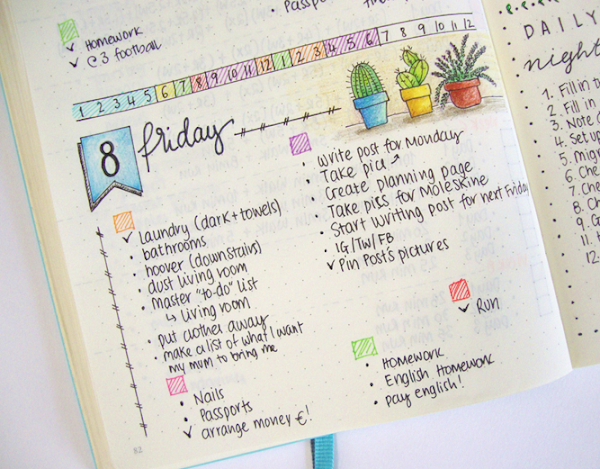 Passpo
Homework
C3 football
1 2 3 4 5 6 7 8 9 10 11 12 1 2 3 4 5 6 7 8 9 10 11 12
8 friday
Laundry (dark+towels)
bathrooms
hoover (downstairs)
dust living room
master "to-do" list
↳ living room
put clothes away
make a list of what I want
my mum to bring me
Nails
Passports
arrange money €!
Write post for Monday
Take pics
Create planning page
Take pics for Moleskine
Start writing post for next Friday
IG/TW/FB
Pin Post's pictures
Run
Homework
English Homework
pay english!
82
DAILY
night
1. Fill in t
2. Fill in
3. Note
4. Set up
5. Mig
6. Che
7. Che
8. C
9. G
10.
11.
12.